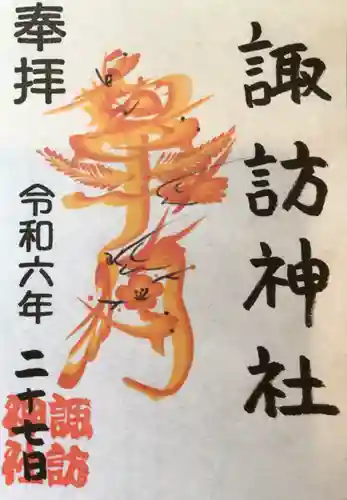 諏訪神社
皐月
奉拝
令和六年 二十七日
諏訪
神社